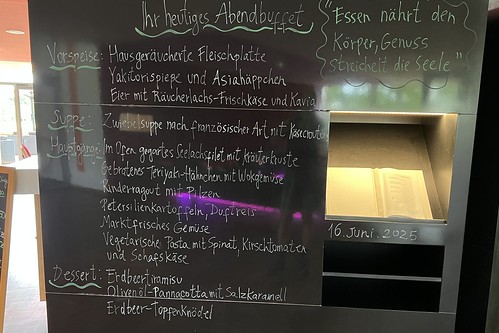 Ihr heutiges Abendbuffet
"Essen nährt den
Körper, Genuss
Streichelt die Seele"
Vorspeise: Hausgeräucherte Fleischplatte
Yakitorispieße und Asiahäppchen
Eier mit Räucherlachs-Frischkäse und Kaviar
Suppe: Zwiebelsuppe nach französischer Art mit Käsecroutons
Hauptgang: Im Ofen gegartes Seelachsfilet mit Kräuterkruste
Gebratenes Teriyaki-Hähnchen mit Wokgemüse
Rinderragout mit Pilzen
Petersilienkartoffeln, Duftreis
Marktfrisches Gemüse
Vegetarische Pasta mit Spinat, Kirschtomaten
und Schafskäse
Dessert: Erdbeertiramisu
Olivenöl-Pannacotta mit Salzkaramell
Erdbeer-Topfenknödel
16. Juni. 2025